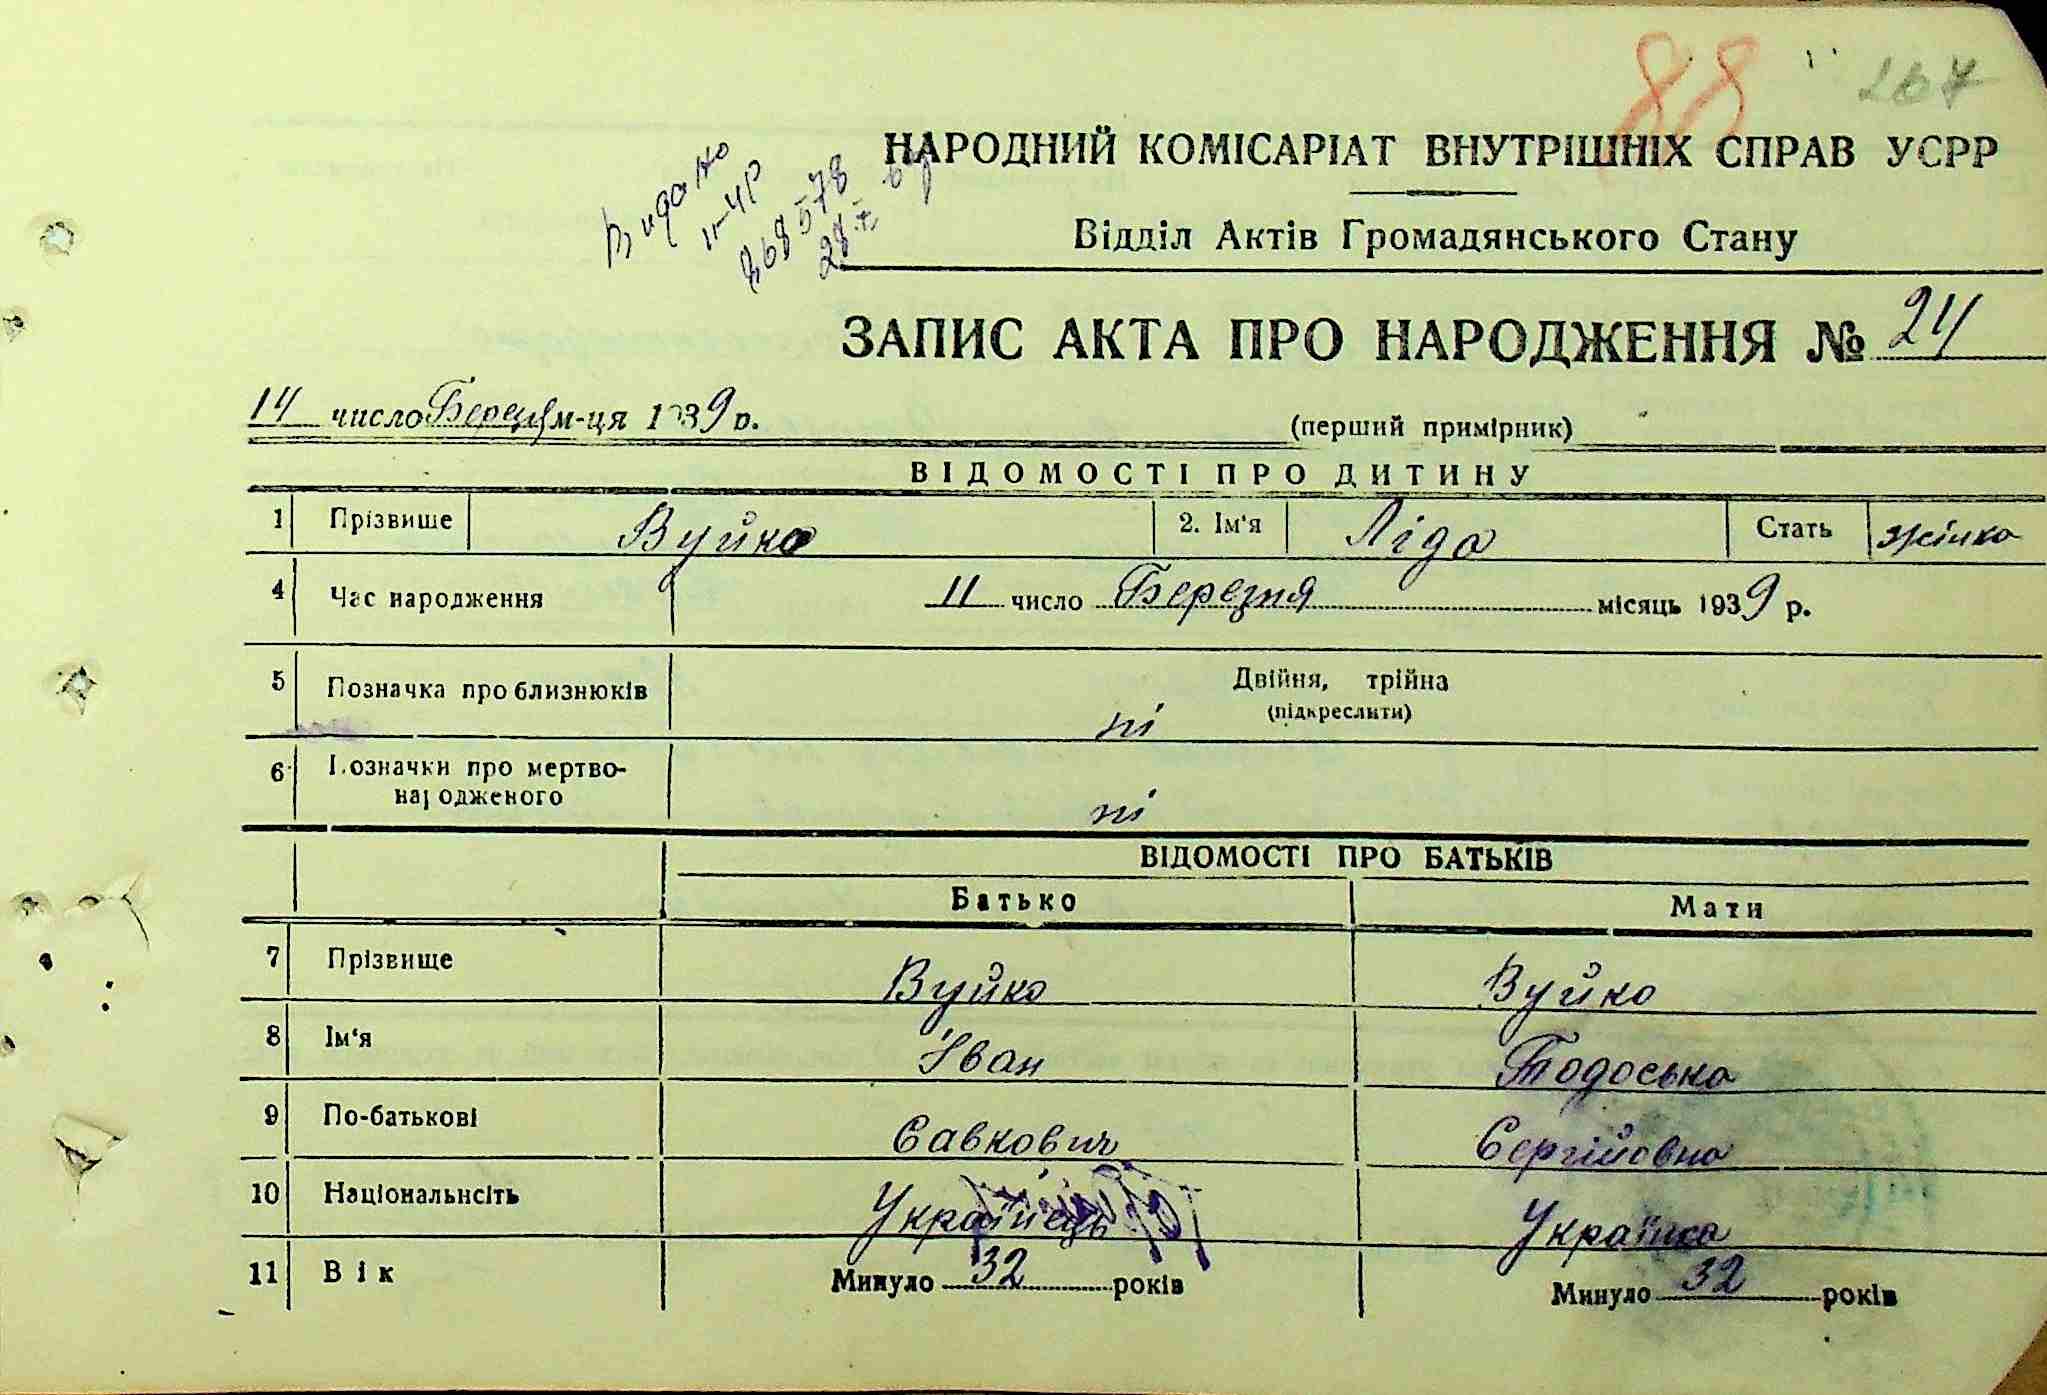 88 267
НАРОДНИЙ КОМІСАРІАТ ВНУТРІШНІХ СПРАВ УСРР
Відділ Актів Громадянського Стану
Видано
ІІ-УР
268578
28
ЗАПИС АКТА ПРО НАРОДЖЕННЯ № 24
14 число Березня м-ця 1939 р.
(перший примірник)
ВІДОМОСТІ ПРО ДИТИНУ
1 Прізвише Вуйко 2. Ім'я Ліда Стать жінка
4 Час народження 11 число Березня місяць 1939 р.
5 Позначка про близнюків Двійня, трійна
(підкреслити)
ні
6 Позначки про мертво-
народженого ні
ВІДОМОСТІ ПРО БАТЬКІВ
Батько Мати
7 Прізвище Вуйко Вуйко
8 Ім'я Іван Тодоська
9 По-батькові Савкович Сергійовна
10 Національнсіть Українець Українка
11 Вік Минуло 32 років Минуло 32 років